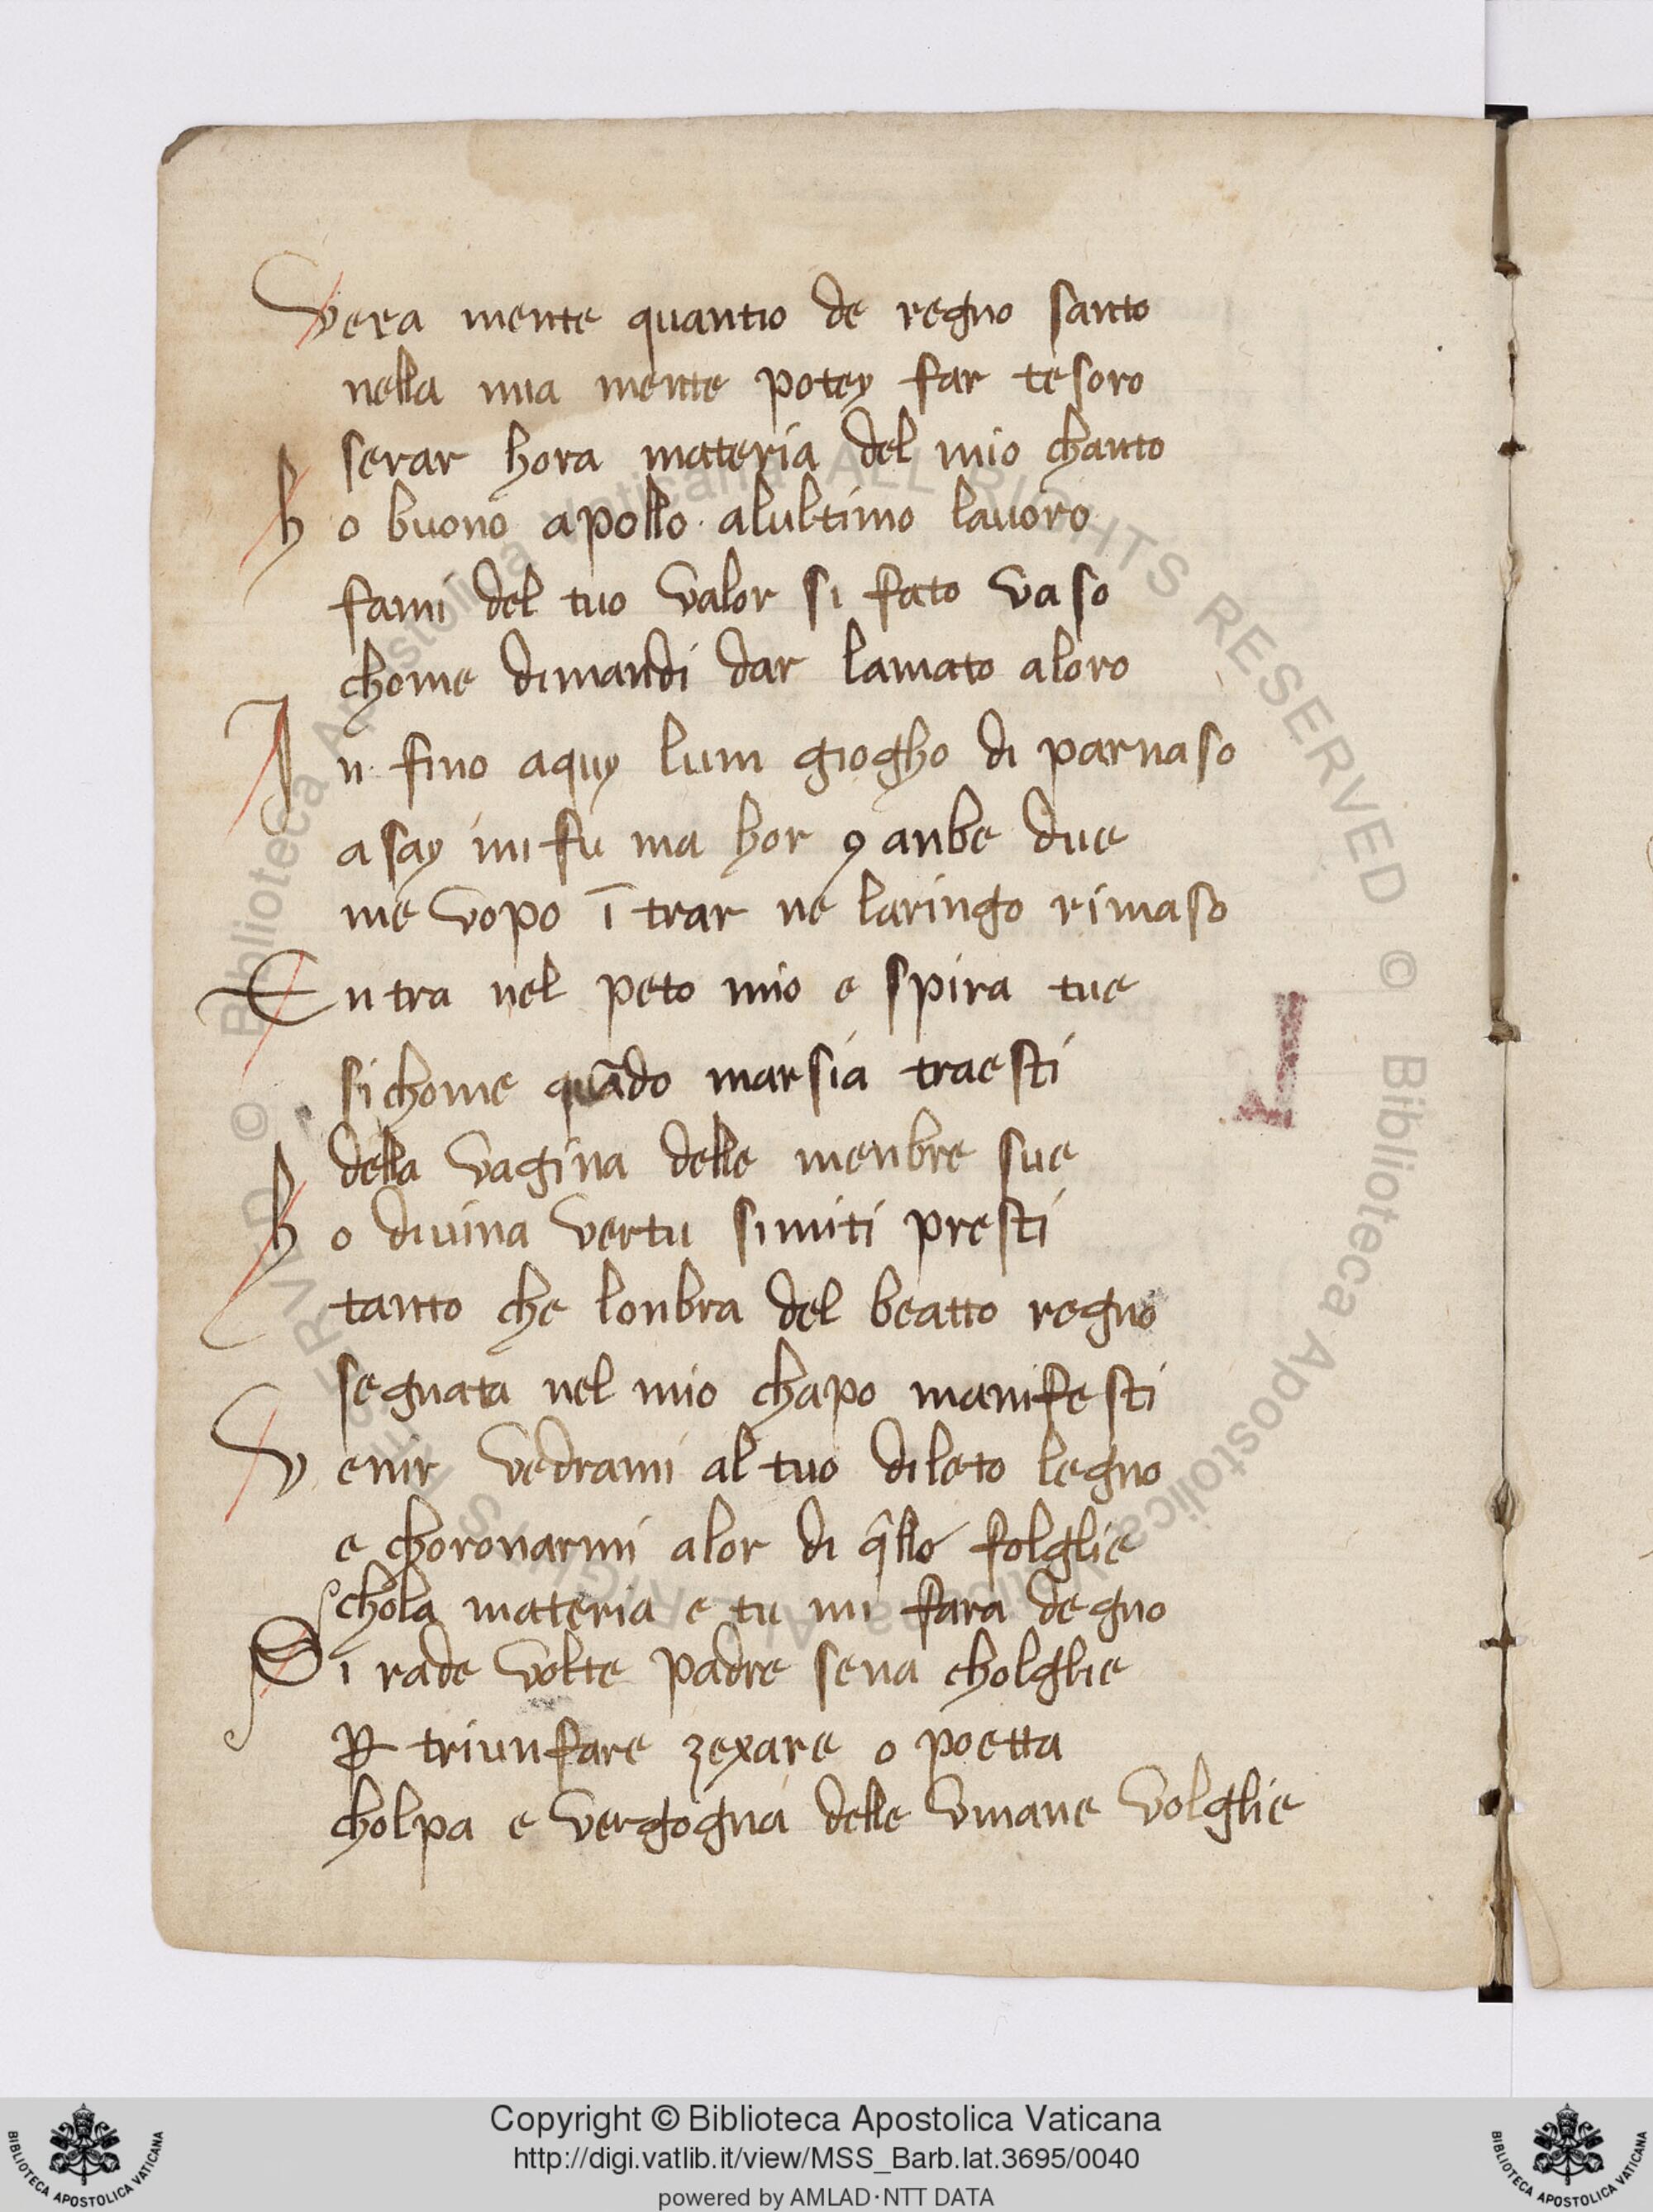 Vera mente quanto de regno santo
nella mia mente potey far tesoro
serar hora materia del mio chanto
ho buono apollo alultimo lauoro
fami del tuo valor si fato vaso
chome dimandi dar lamato aloro
In fino aquy lum giogho di parnaso
asay mi fu ma hor ꝯ anbe due
me vopo ī trar ne laringo rimaso
Entra nel peto mio e spira tue
sichome quādo marsia traesti
della vagina delle menbre sue
ho diuina vertu simiti presti
tanto che lonbra del beatto regno
segnata nel mio chapo manifesti
Venir vedrami al tuo dileto legno
e choronarmi alor di q̃lle folglie
chola materia e tu mi fara degno
Si rade volte padre sena cholglie
ꝑ triunfare zexare o poetta
cholpa e vergogna delle vmane volglie
© Biblioteca Apostolica Vaticana ALL RIGHTS RESERVED © Biblioteca Apostolica Vaticana ALL RIGHTS RESERVED
Copyright © Biblioteca Apostolica Vaticana
http://digi.vatlib.it/view/MSS_Barb.lat.3695/0040
powered by AMLAD·NTT DATA
BIBLIOTECA APOSTOLICA VATICANA
BIBLIOTECA APOSTOLICA VATICANA